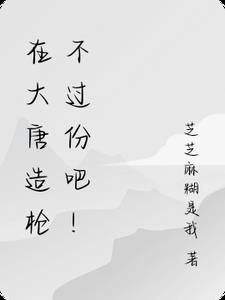 在大唐造枪
不过份吧！
芝芝麻糊是我 著